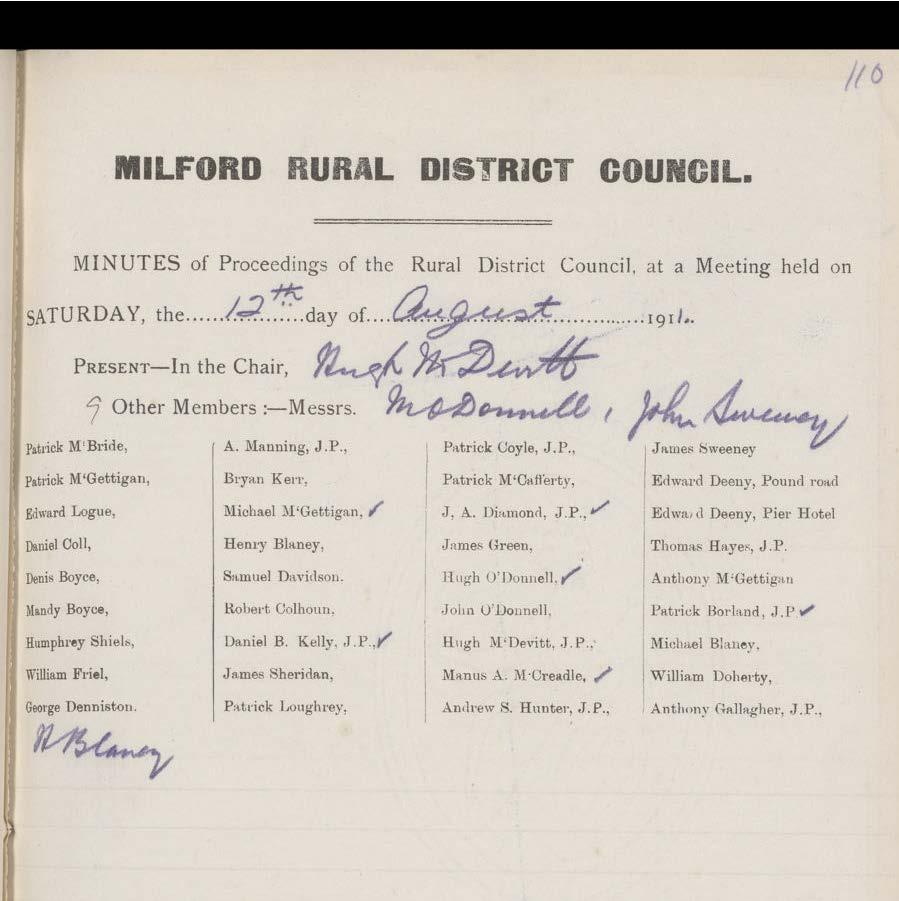 110
MILFORD RURAL DISTRICT COUNCIL.
MINUTES of Proceedings of the Rural District Council, at a Meeting held on
SATURDAY, the......12th......day of....August..................1911.
PRESENT—In the Chair, Hugh McDevitt
9 Other Members :—Messrs. McDonnell, John Sweeney
Patrick M‘Bride, A. Manning, J.P., Patrick Coyle, J.P., James Sweeney
Patrick M‘Gettigan, Bryan Kerr, Patrick M‘Cafferty, Edward Deeny, Pound road
Edward Logue, Michael M‘Gettigan, ✓ J, A. Diamond, J.P., ✓ Edward Deeny, Pier Hotel
Daniel Coll, Henry Blaney, James Green, Thomas Hayes, J.P.
Denis Boyce, Samuel Davidson. Hugh O'Donnell, ✓ Anthony M‘Gettigan
Mandy Boyce, Robert Colhoun, John O'Donnell, Patrick Borland, J.P ✓
Humphrey Shiels, Daniel B. Kelly, J.P., ✓ Hugh M‘Devitt, J.P., Michael Blaney,
William Friel, James Sheridan, Manus A. M‘Creadle, ✓ William Doherty,
George Denniston. Patrick Loughrey, Andrew S. Hunter, J.P., Anthony Gallagher, J.P.,
H Blaney